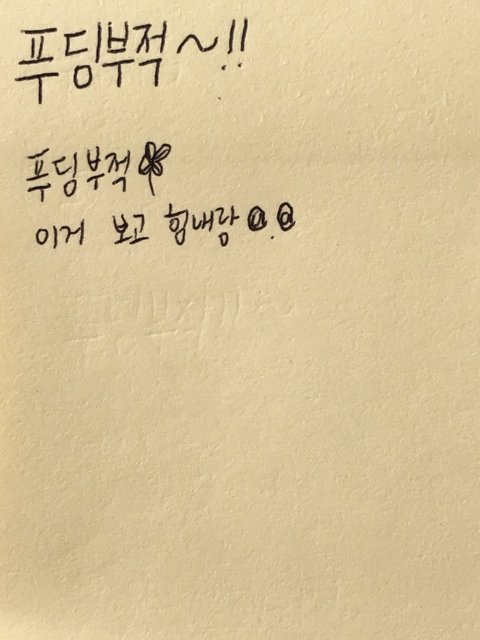 푸딩부적~!!
푸딩부적
이거 보고 힘내랑 @.@